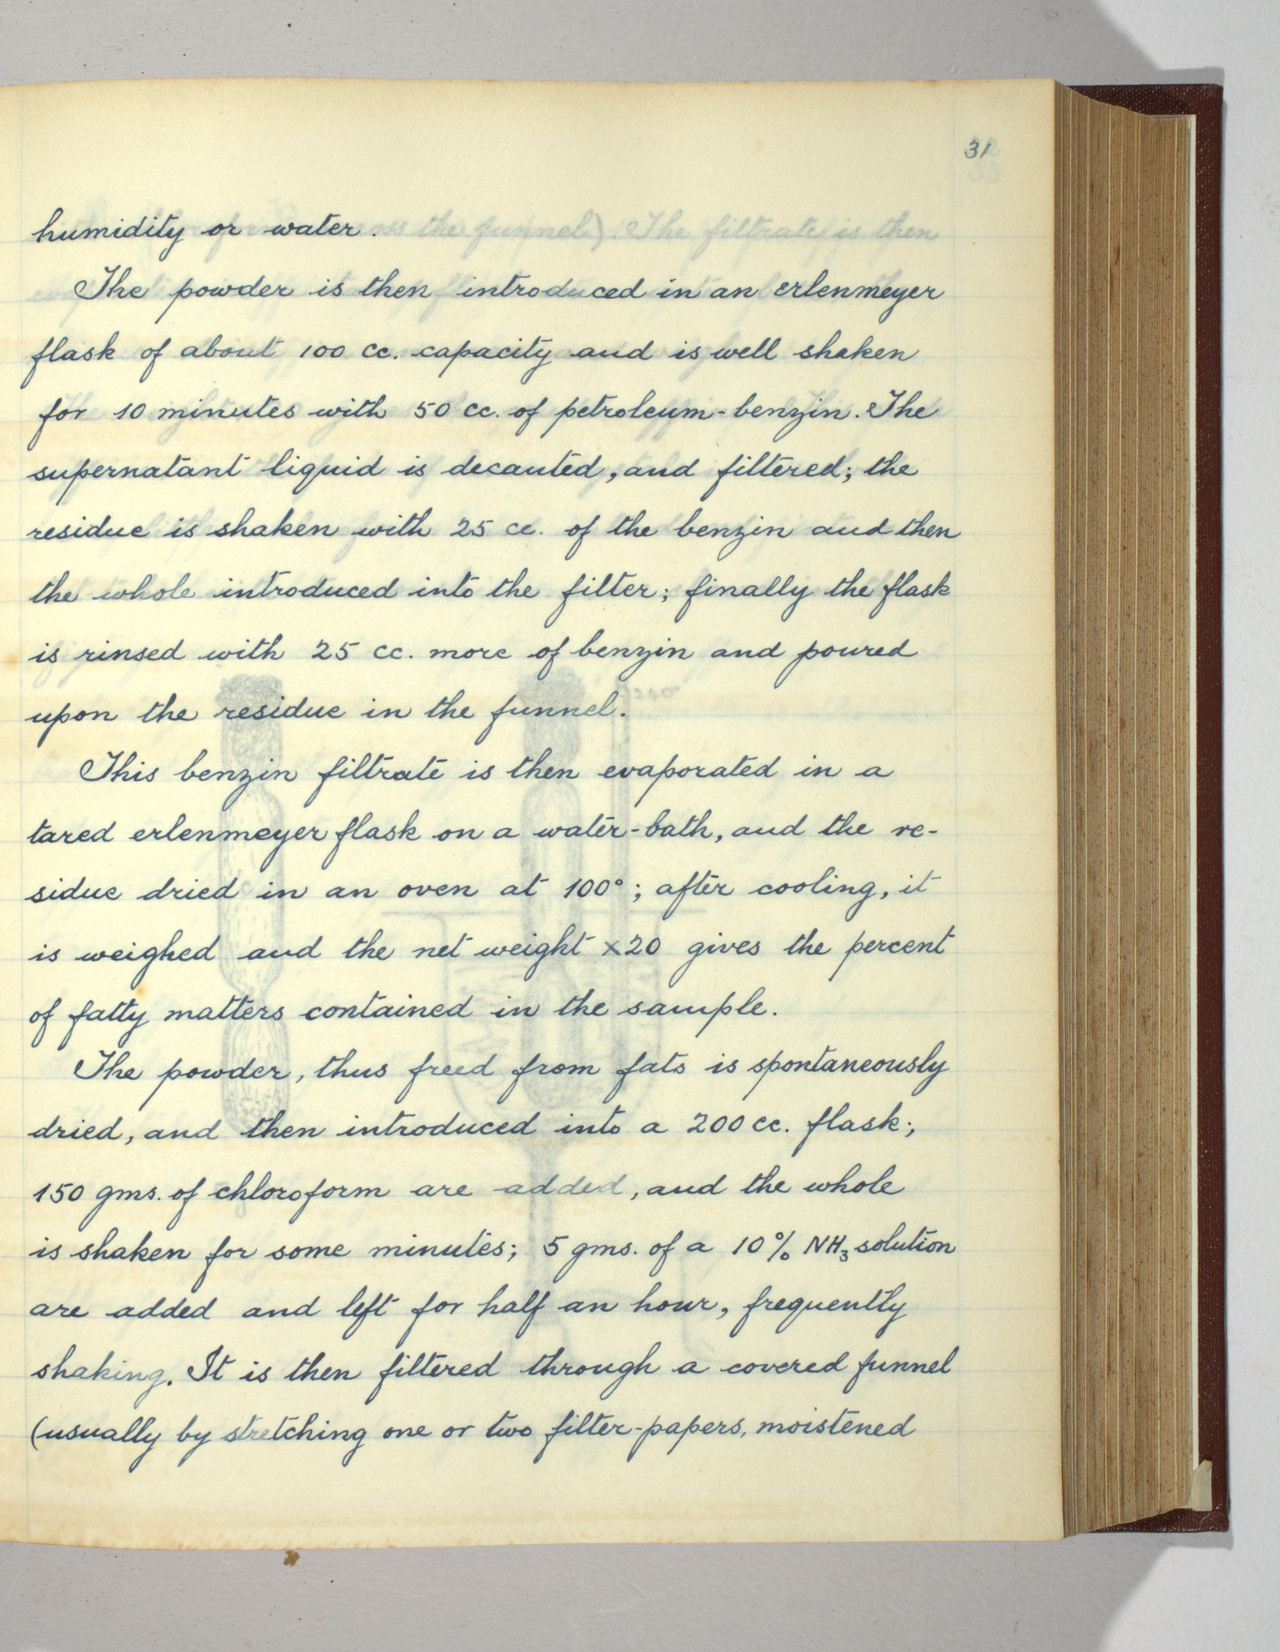 31
humidity or water.
The powder is then introduced in an erlenmeyer
flask of about 100 cc. capacity and is well shaken
for 10 minutes with 50 cc. of petroleum-benzin. The
supernatant liquid is decanted, and filtered; the
residue is shaken with 25 cc. of the benzin and then
the whole introduced into the filter; finally the flask
is rinsed with 25 cc. more of benzin and poured
upon the residue in the funnel.
This benzin filtrate is then evaporated in a
tared erlenmeyer flask on a water-bath, and the re-
sidue dried in an oven at 100°; after cooling, it
is weighed and the net weight ×20 gives the percent
of fatty matters contained in the sample.
The powder, thus freed from fats is spontaneously
dried, and then introduced into a 200 cc. flask;
150 gms. of chloroform are added, and the whole
is shaken for some minutes; 5 gms. of a 10% NH₃ solution
are added and left for half an hour, frequently
shaking. It is then filtered through a covered funnel
(usually by stretching one or two filter-papers, moistened